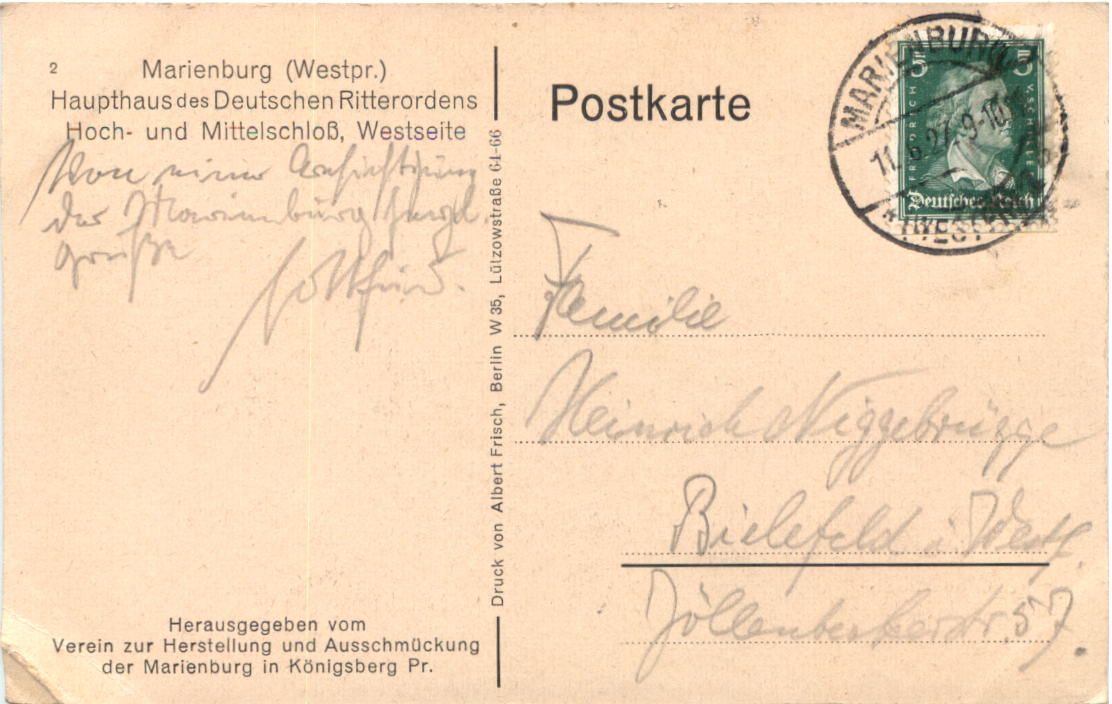 2
Marienburg (Westpr.)
Haupthaus des Deutschen Ritterordens
Hoch- und Mittelschloß, Westseite
Von einer Besichtigung
der Marienburg
Grüße
Postkarte
MARIENBURG
11.6.27. 9-10
(WESTPR.)
5 5
FRIEDRICH V. SCHILLER
Deutsches Reich
Druck von Albert Frisch, Berlin W 35, Lützowstraße 64-66
Familie
Heinrich Niggebrügge
Bielefeld i. Westf.
Jöllenbeckerstr. 57.
Herausgegeben vom
Verein zur Herstellung und Ausschmückung
der Marienburg in Königsberg Pr.